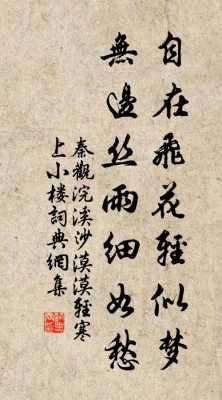 自在飛花輕似梦
無邊丝雨細如愁
秦觀浣溪沙漠漠輕寒
上小楼詞典網集